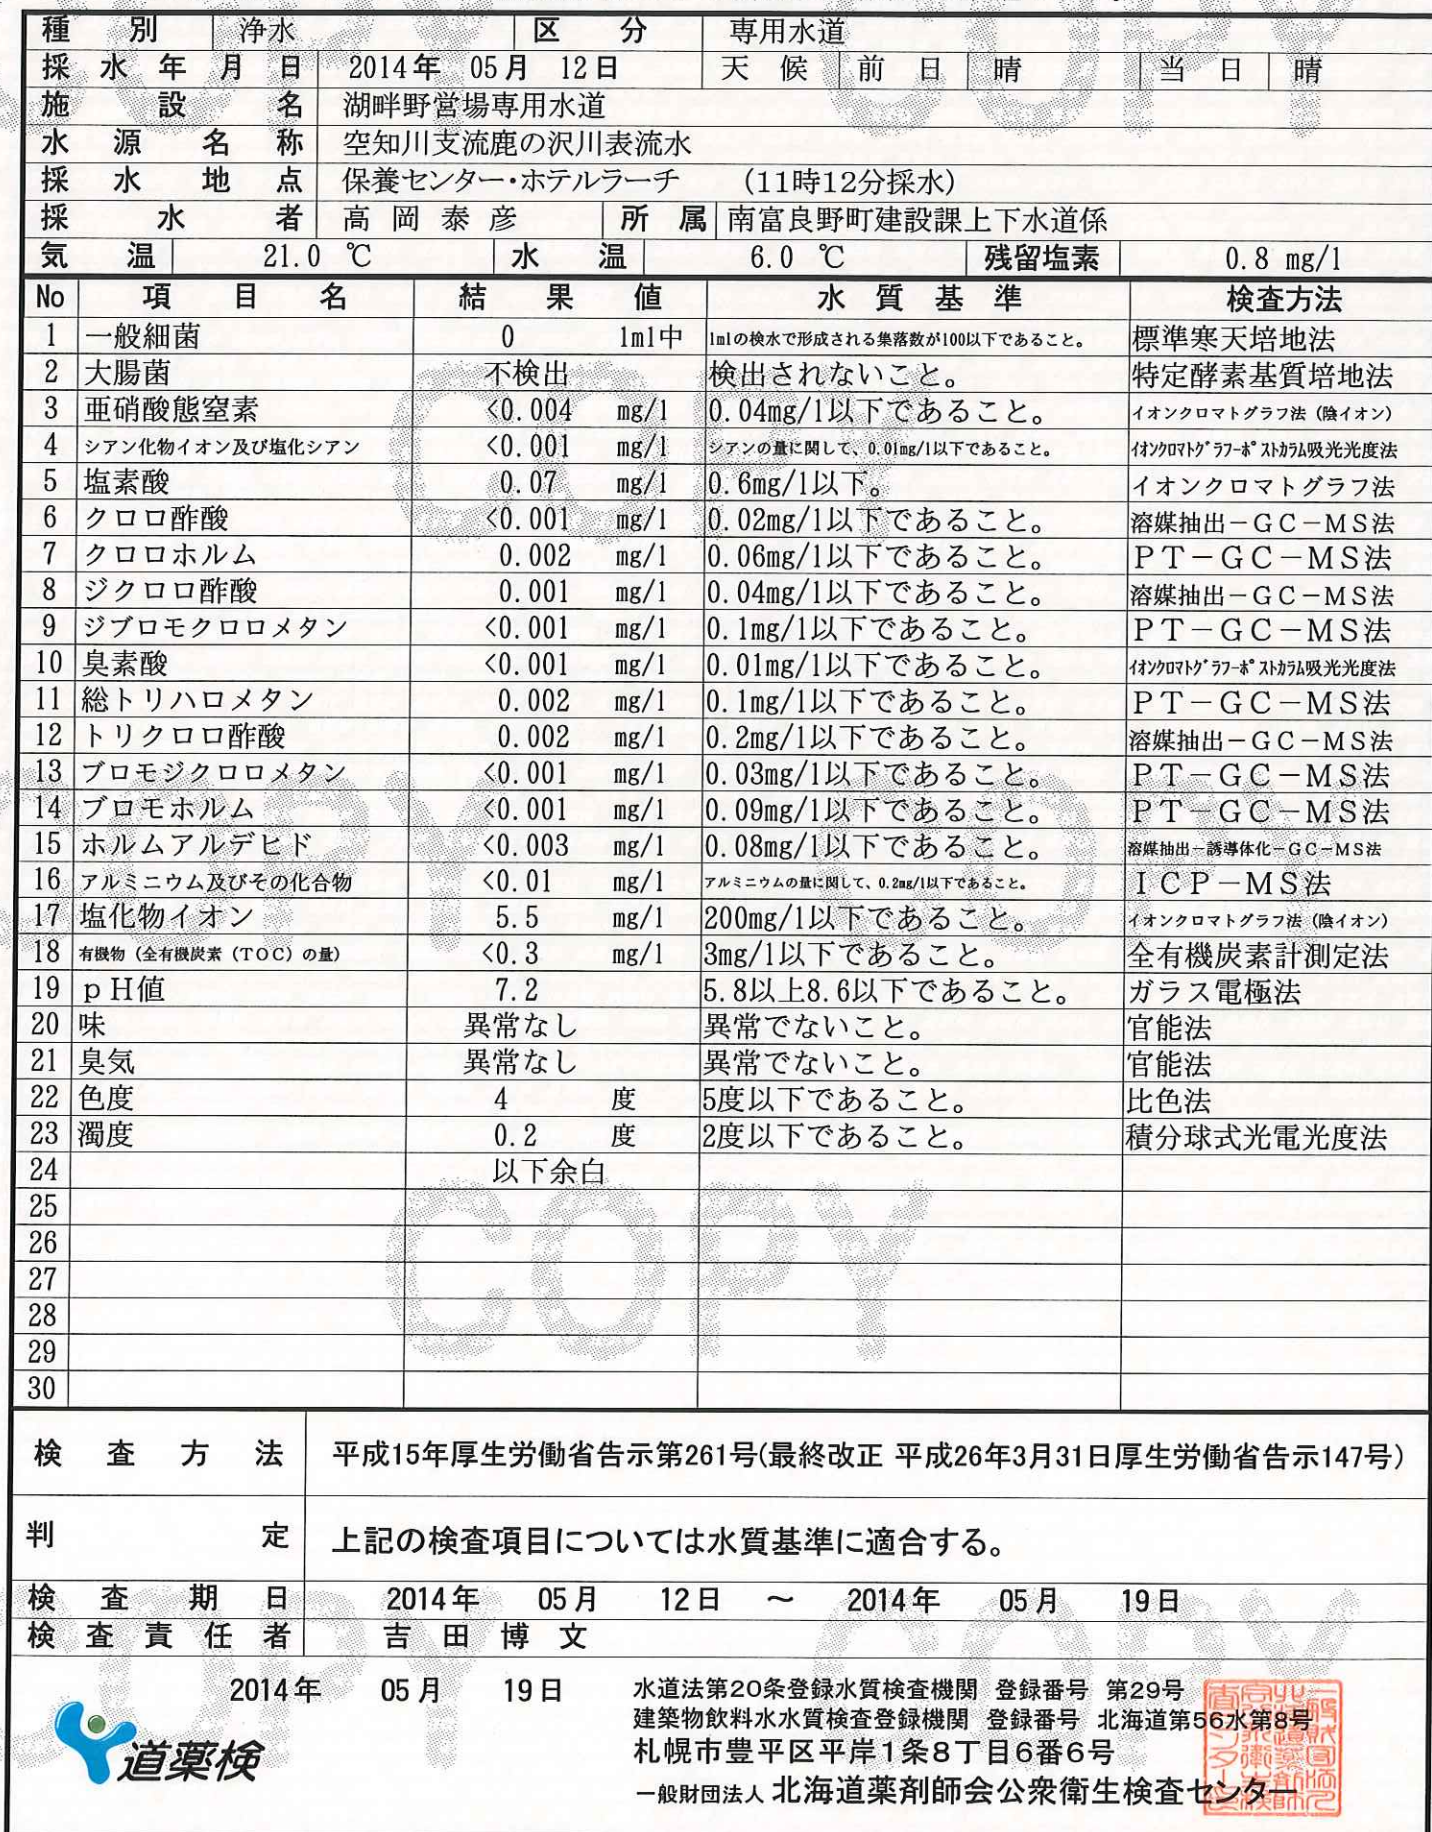 種別 浄水 区分 専用水道
採水年月日 2014年 05月 12日 天候 前日 晴 当日 晴
施設名 湖畔野営場専用水道
水源名称 空知川支流鹿の沢川表流水
採水地点 保養センター・ホテルラーチ (11時12分採水)
採水者 高岡泰彦 所属 南富良野町建設課上下水道係
気温 21.0 ℃ 水温 6.0 ℃ 残留塩素 0.8 mg/l
No 項目名 結果値 水質基準 検査方法
1 一般細菌 0 1ml中 1mlの検水で形成される集落数が100以下であること。 標準寒天培地法
2 大腸菌 不検出 検出されないこと。 特定酵素基質培地法
3 亜硝酸態窒素 <0.004 mg/l 0.04mg/l以下であること。 イオンクロマトグラフ法(陰イオン)
4 シアン化物イオン及び塩化シアン <0.001 mg/l シアンの量に関して、0.01mg/l以下であること。 イオンクロマトグラフーポストカラム吸光光度法
5 塩素酸 0.07 mg/l 0.6mg/l以下。 イオンクロマトグラフ法
6 クロロ酢酸 <0.001 mg/l 0.02mg/l以下であること。 溶媒抽出-GC-MS法
7 クロロホルム 0.002 mg/l 0.06mg/l以下であること。 PT-GC-MS法
8 ジクロロ酢酸 0.001 mg/l 0.04mg/l以下であること。 溶媒抽出-GC-MS法
9 ジブロモクロロメタン <0.001 mg/l 0.1mg/l以下であること。 PT-GC-MS法
10 臭素酸 <0.001 mg/l 0.01mg/l以下であること。 イオンクロマトグラフーポストカラム吸光光度法
11 総トリハロメタン 0.002 mg/l 0.1mg/l以下であること。 PT-GC-MS法
12 トリクロロ酢酸 0.002 mg/l 0.2mg/l以下であること。 溶媒抽出-GC-MS法
13 ブロモジクロロメタン <0.001 mg/l 0.03mg/l以下であること。 PT-GC-MS法
14 ブロモホルム <0.001 mg/l 0.09mg/l以下であること。 PT-GC-MS法
15 ホルムアルデヒド <0.003 mg/l 0.08mg/l以下であること。 溶媒抽出-誘導体化-GC-MS法
16 アルミニウム及びその化合物 <0.01 mg/l アルミニウムの量に関して、0.2mg/l以下であること。 ICP-MS法
17 塩化物イオン 5.5 mg/l 200mg/l以下であること。 イオンクロマトグラフ法(陰イオン)
18 有機物(全有機炭素(TOC)の量) <0.3 mg/l 3mg/l以下であること。 全有機炭素計測定法
19 pH値 7.2 5.8以上8.6以下であること。 ガラス電極法
20 味 異常なし 異常でないこと。 官能法
21 臭気 異常なし 異常でないこと。 官能法
22 色度 4 度 5度以下であること。 比色法
23 濁度 0.2 度 2度以下であること。 積分球式光電光度法
24 以下余白
25
26
27
28
29
30
検査方法 平成15年厚生労働省告示第261号(最終改正 平成26年3月31日厚生労働省告示147号)
判定 上記の検査項目については水質基準に適合する。
検査期日 2014年 05月 12日 ~ 2014年 05月 19日
検査責任者 吉田博文
2014年 05月 19日
水道法第20条登録水質検査機関 登録番号 第29号
建築物飲料水水質検査登録機関 登録番号 北海道第56水第8号
札幌市豊平区平岸1条8丁目6番6号
一般財団法人 北海道薬剤師会公衆衛生検査センター
道薬検
COPY